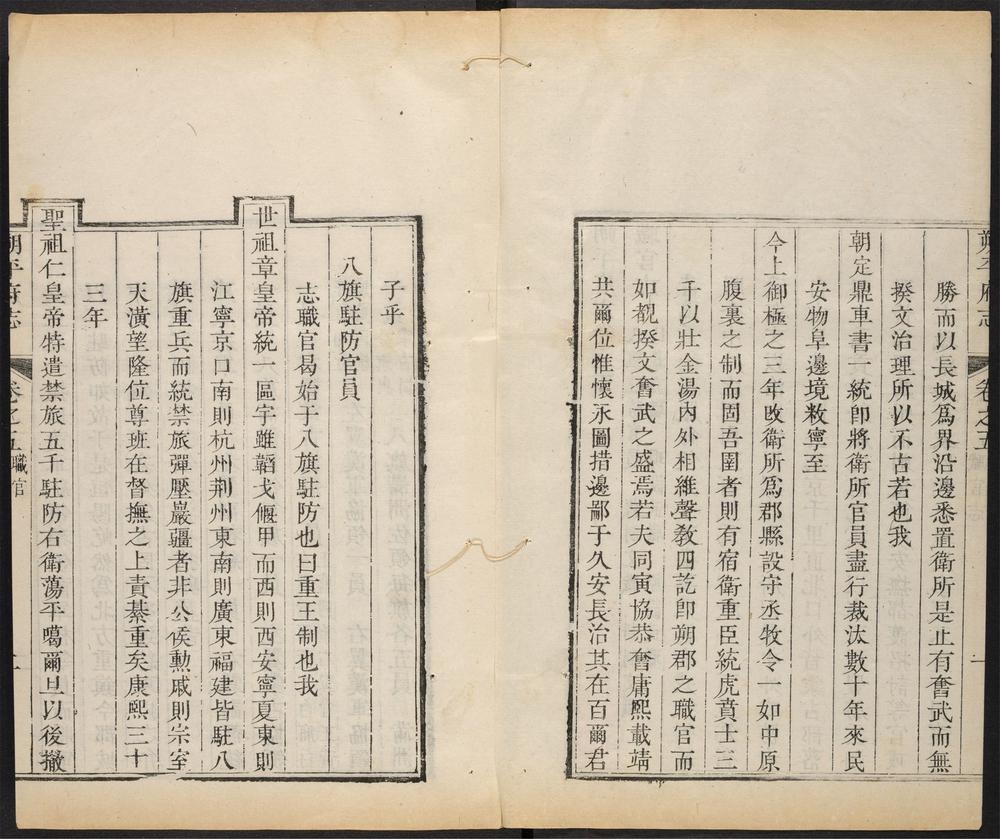 朔平府志 卷之五 一
勝而以長城爲界沿邊悉置衛所是止有奮武而無
揆文治理所以不古若也我
朝定鼎車書一統卽將衛所官員盡行裁汰數十年來民
安物阜邊境敉寧至
今上御極之三年改衛所爲郡縣設守丞牧令一如中原
腹裏之制而固吾圉者則有宿衛重臣統虎賁士三
千以壯金湯內外相維聲敎四訖卽朔郡之職官而
如覩揆文奮武之盛焉若夫同寅協恭奮庸熙載靖
共爾位惟懷永圖措邊鄙于久安長治其在百爾君
子乎
八旗駐防官員
志職官曷始于八旗駐防也曰重王制也我
世祖章皇帝統一區宇雖韜戈偃甲而西則西安寧夏東則
江寧京口南則杭州荆州東南則廣東福建皆駐八
旗重兵而統禁旅彈壓巖疆者非公侯勲戚則宗室
天潢望隆位尊班在督撫之上責綦重矣康熙三十
三年
聖祖仁皇帝特遣禁旅五千駐防右衛蕩平噶爾旦以後撤
朔平府志 卷之五 職官